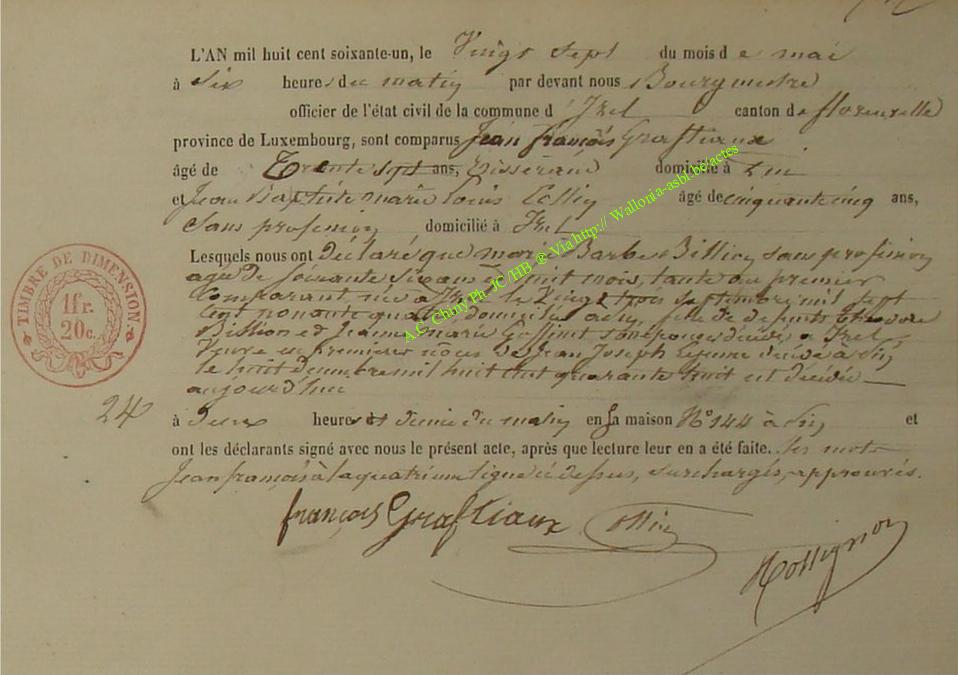 L'AN mil huit cent soixante-un, le Vingt sept du mois d e mai
à Six heures du matin par devant nous Bourgmestre
officier de l'état civil de la commune d'Izel canton de florenville
province de Luxembourg, sont comparus Jean françois Graftiaux
âgé de Trente sept ans, Tisserand domicilié à
et Jean Baptiste marie Louis âgé de cinquante cinq ans,
Sans profession domicilié à Izel
Lesquels nous ont Déclaré que marie Barbe Billion sans profession
agée de soixante six ans huit mois, tante du premier
Comparant née a Izel le Vingt trois septembre mil sept
Cent nonante quatre domiciliée fille de defunts
Billion et Jeanne marie son épouse décédés a Izel
Veuve en premières noces de Jean Joseph Lejeune décédé à
le huit décembre mil huit cent quarante huit est décédée
aujourd'hui
24
à Deux heures et demie du matin en sa maison N° 144 à et
ont les déclarants signé avec nous le présent acte, après que lecture leur en a été faite. les mots
Jean françois à la quatrieme ligne ci dessus, surchargés, approuvés.
françois Graftiaux
TIMBRE DE DIMENSION
1 fr.
20 c.
A.G. Chiny Ph. JC /HB ® Via http:// Wallonia-asbl.be/actes